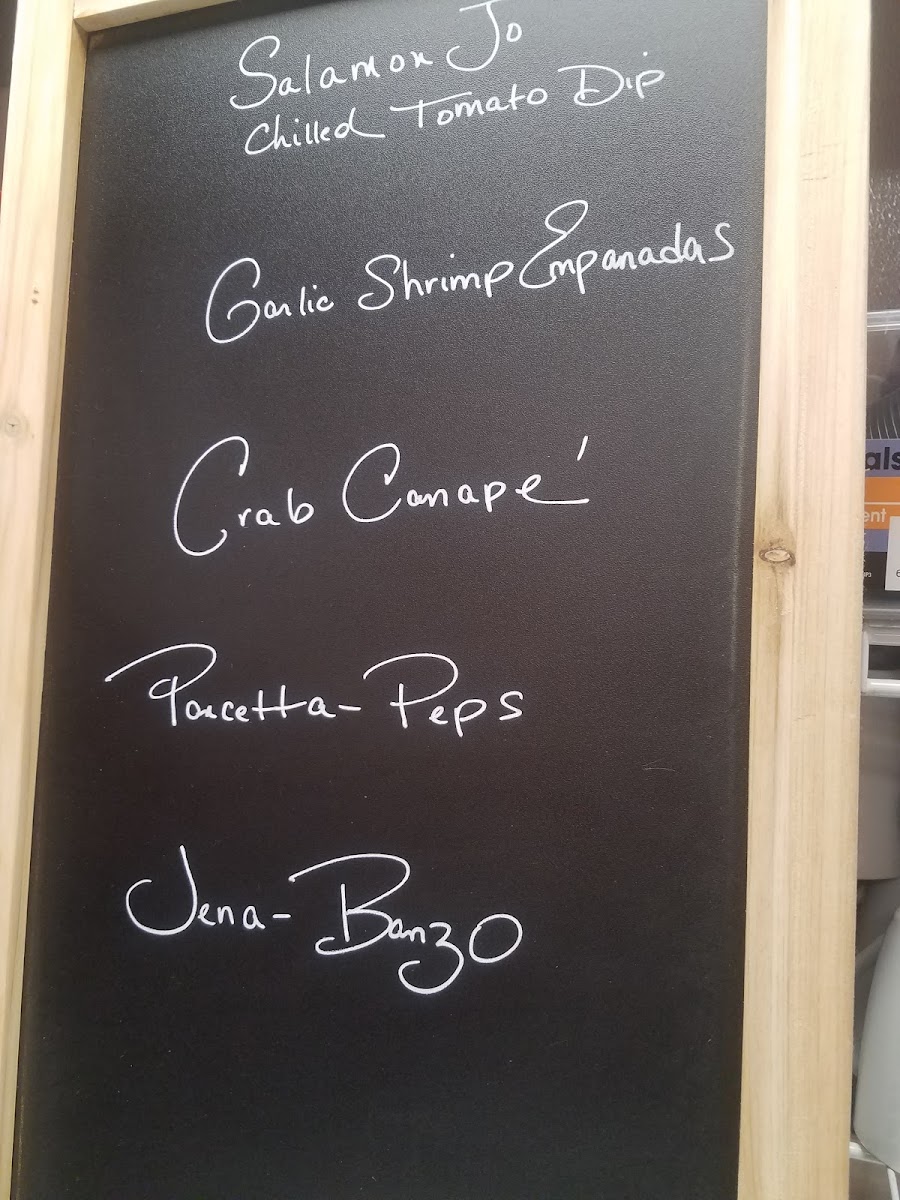 Salamon Jo
Chilled Tomato Dip
Garlic Shrimp Empanadas
Crab Canapé
Porcetta-Peps
Jena-Banzo
als
ent